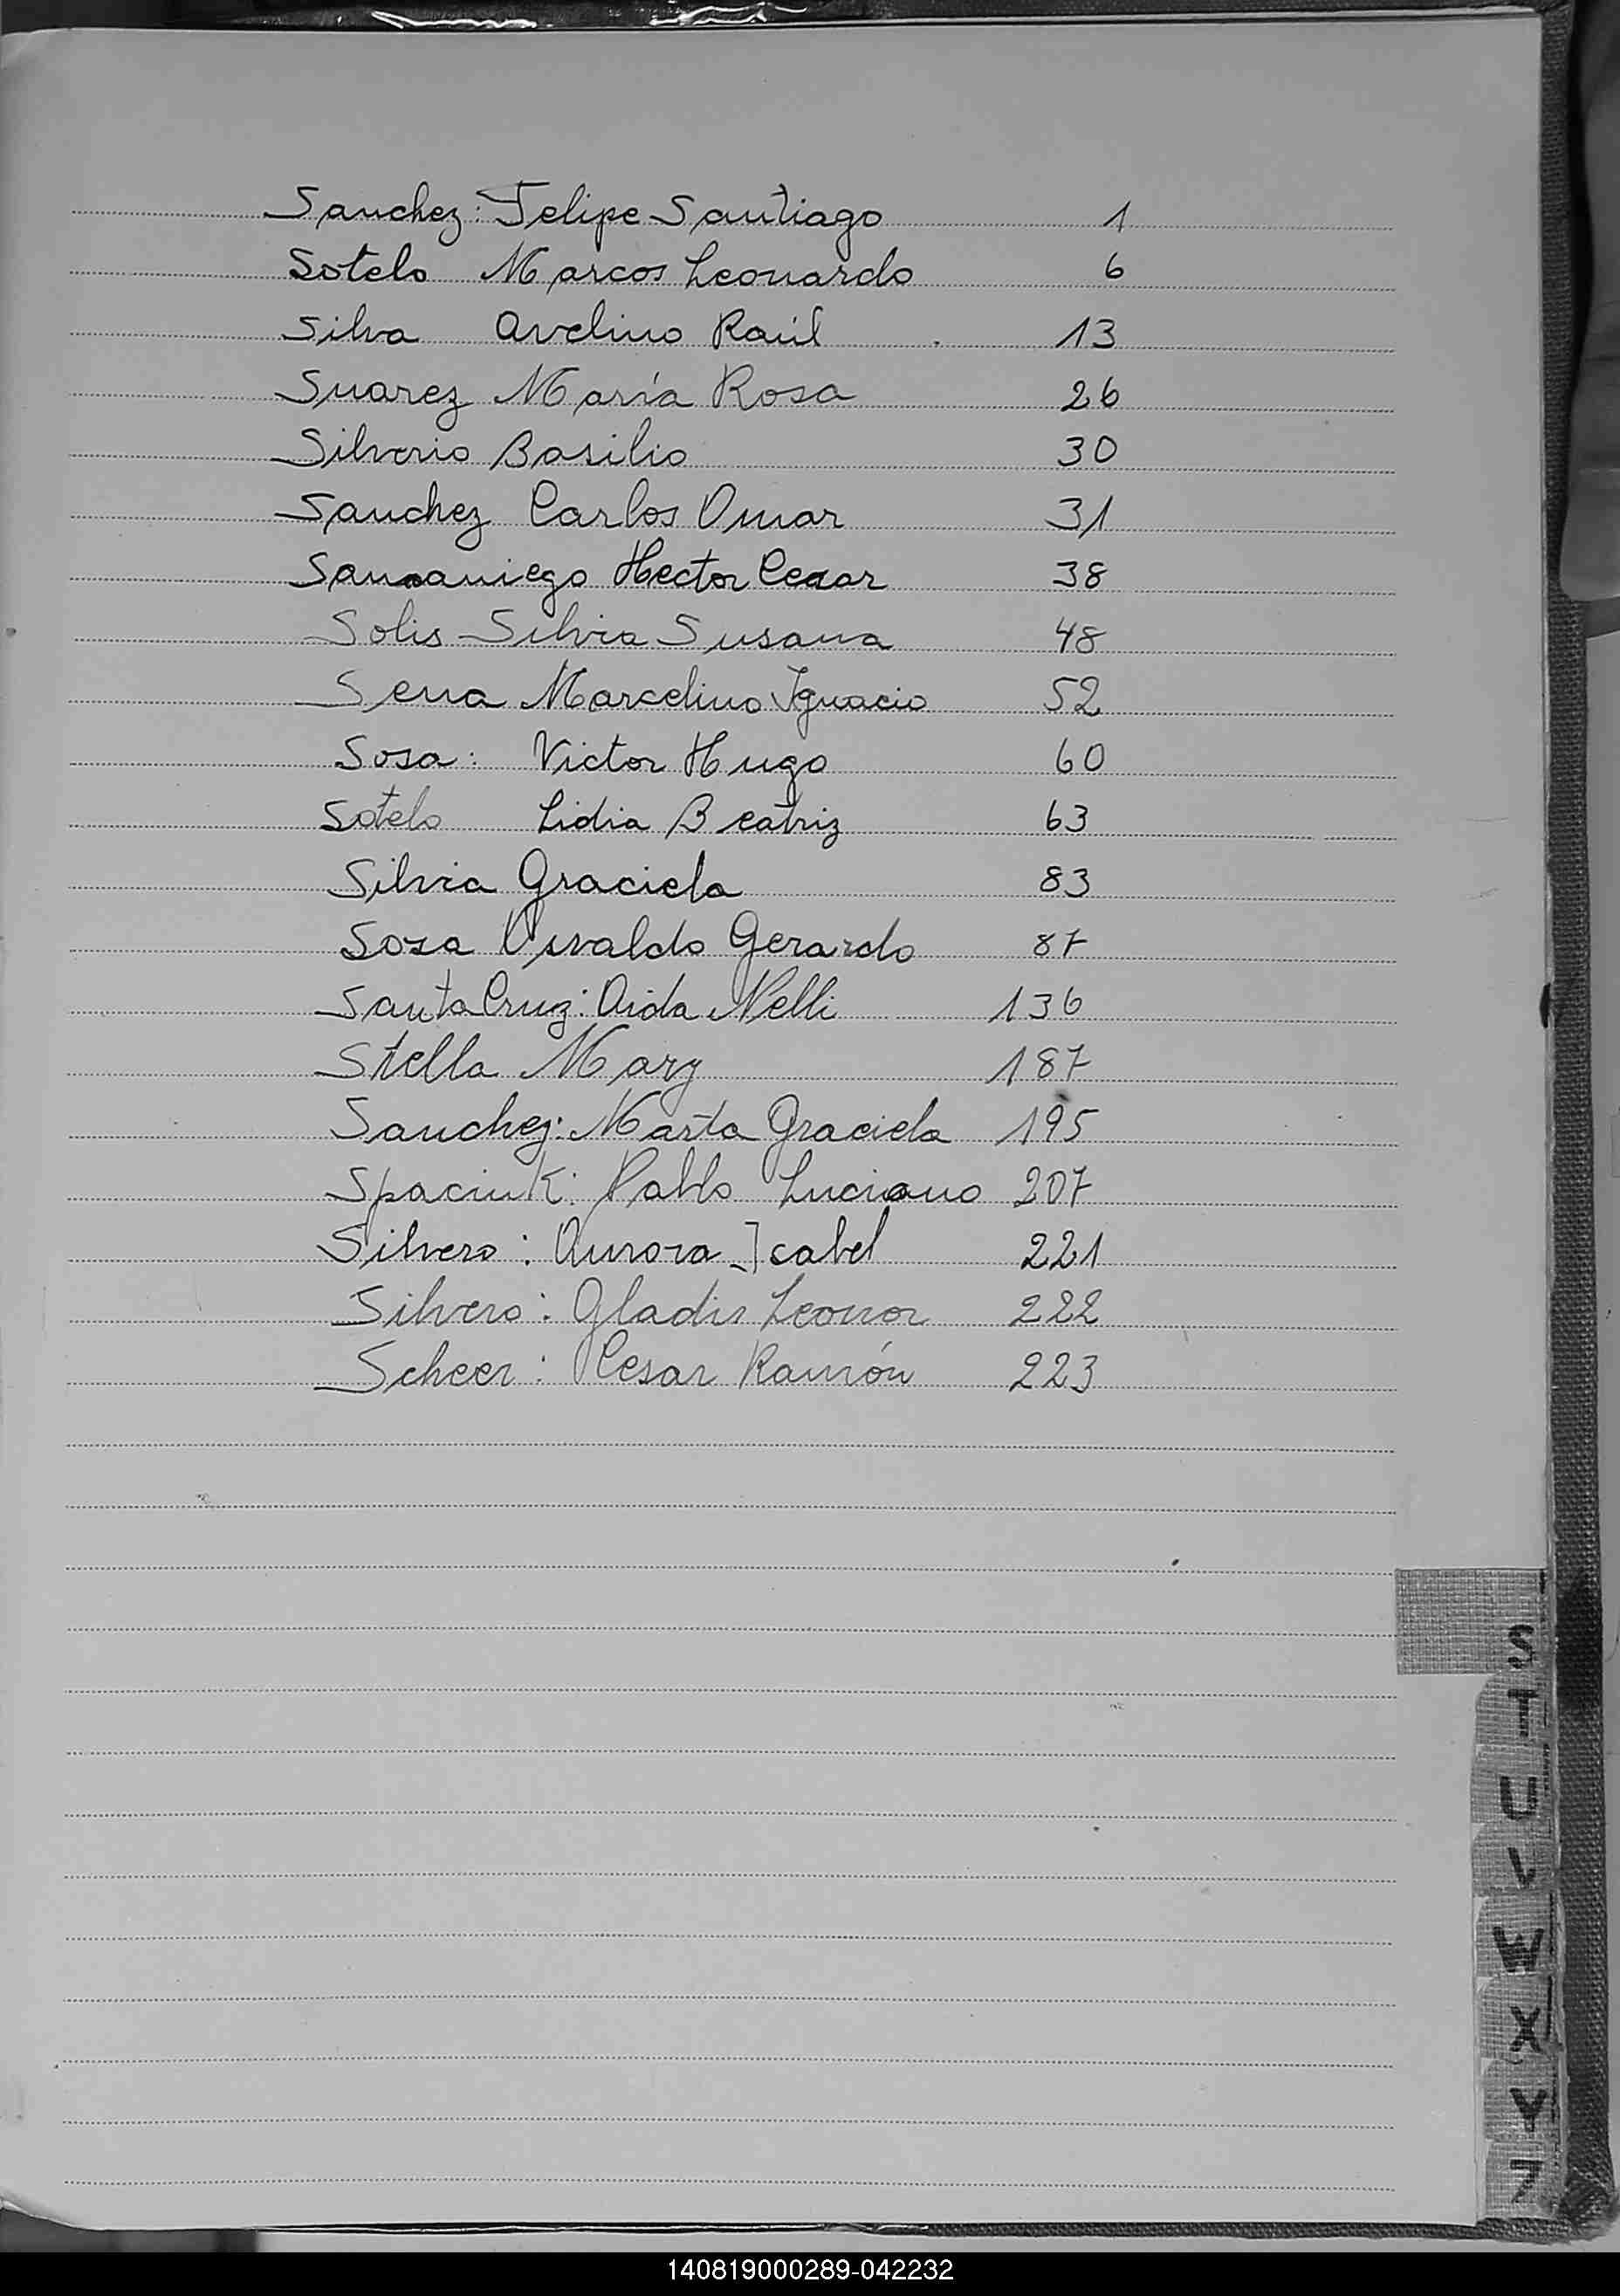 Sanchez: Felipe Santiago 1
Sotelo Marcos Leonardo 6
Silva Avelino Raúl 13
Suarez María Rosa 26
Silverio Basilio 30
Sanchez Carlos Omar 31
Samaniego Hector Cesar 38
Solis Silvia Susana 48
Sena Marcelino Ignacio 52
Sosa: Victor Hugo 60
Sotelo Lidia Beatriz 63
Silvia Graciela 83
Sosa Osvaldo Gerardo 87
Santa Cruz: Aida Nelli 136
Stella Mary 187
Sanchez: Marta Graciela 195
Spaciuk: Pablo Luciano 207
Silvero: Aurora Isabel 221
Silvero: Gladis Leonor 222
Scheer: Cesar Ramón 223
S
T
U
V
W
X
Y
Z
140819000289-042232